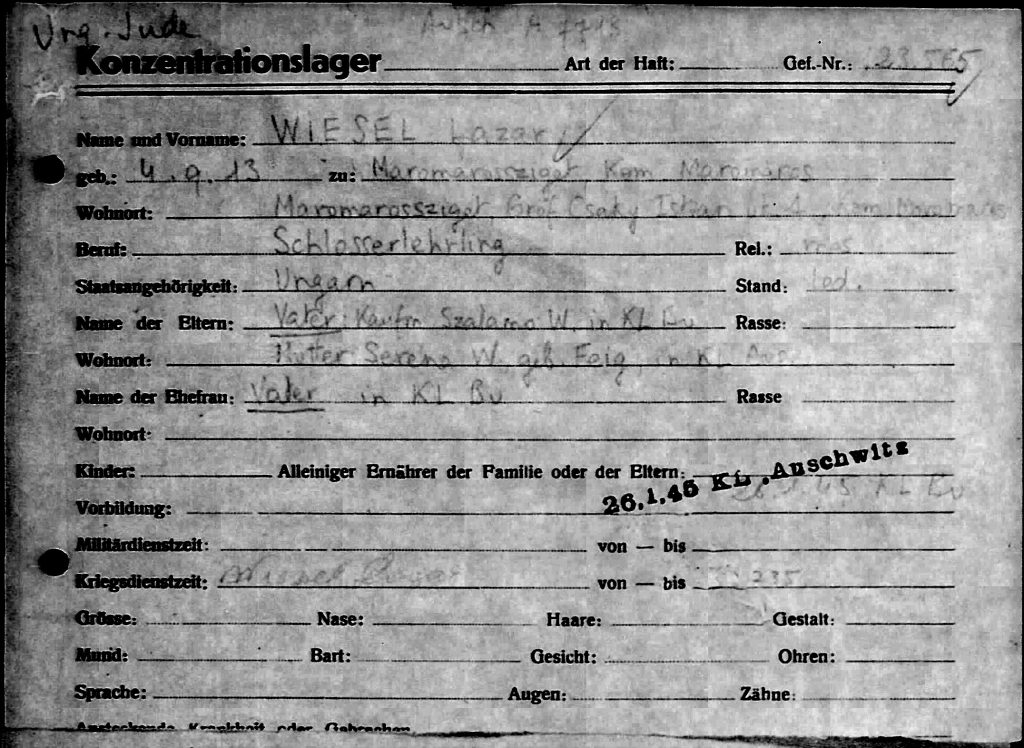 Ung. Jude Ausch A 7713
Konzentrationslager Art der Haft: Gef.-Nr.: 23.565
Name und Vorname: WIESEL Lazar
geb.: 4.9.13 zu: Maromarossziget Kom Maromaros
Wohnort: Maromarossziget Gróf Csaky Istvan
Beruf: Schlosserlehrling Rel.: mos
Staatsangehörigkeit: Ungarn Stand: led.
Name der Eltern: Vater: Kaufm Szalamo W. in KL Bu Rasse:
Wohnort: Mutter Serena W. geb. Feig, in KL Aus
Name der Ehefrau: Vater in KL Bu Rasse
Wohnort:
Kinder: Alleiniger Ernährer der Familie oder der Eltern:
26.1.45 KL. Auschwitz
26.1.45 KL Bu
Vorbildung:
Militärdienstzeit: von — bis
Kriegsdienstzeit: von — bis
Grösse: Nase: Haare: Gestalt:
Mund: Bart: Gesicht: Ohren:
Sprache: Augen: Zähne:
Ansteckende Krankheit oder Gebrechen